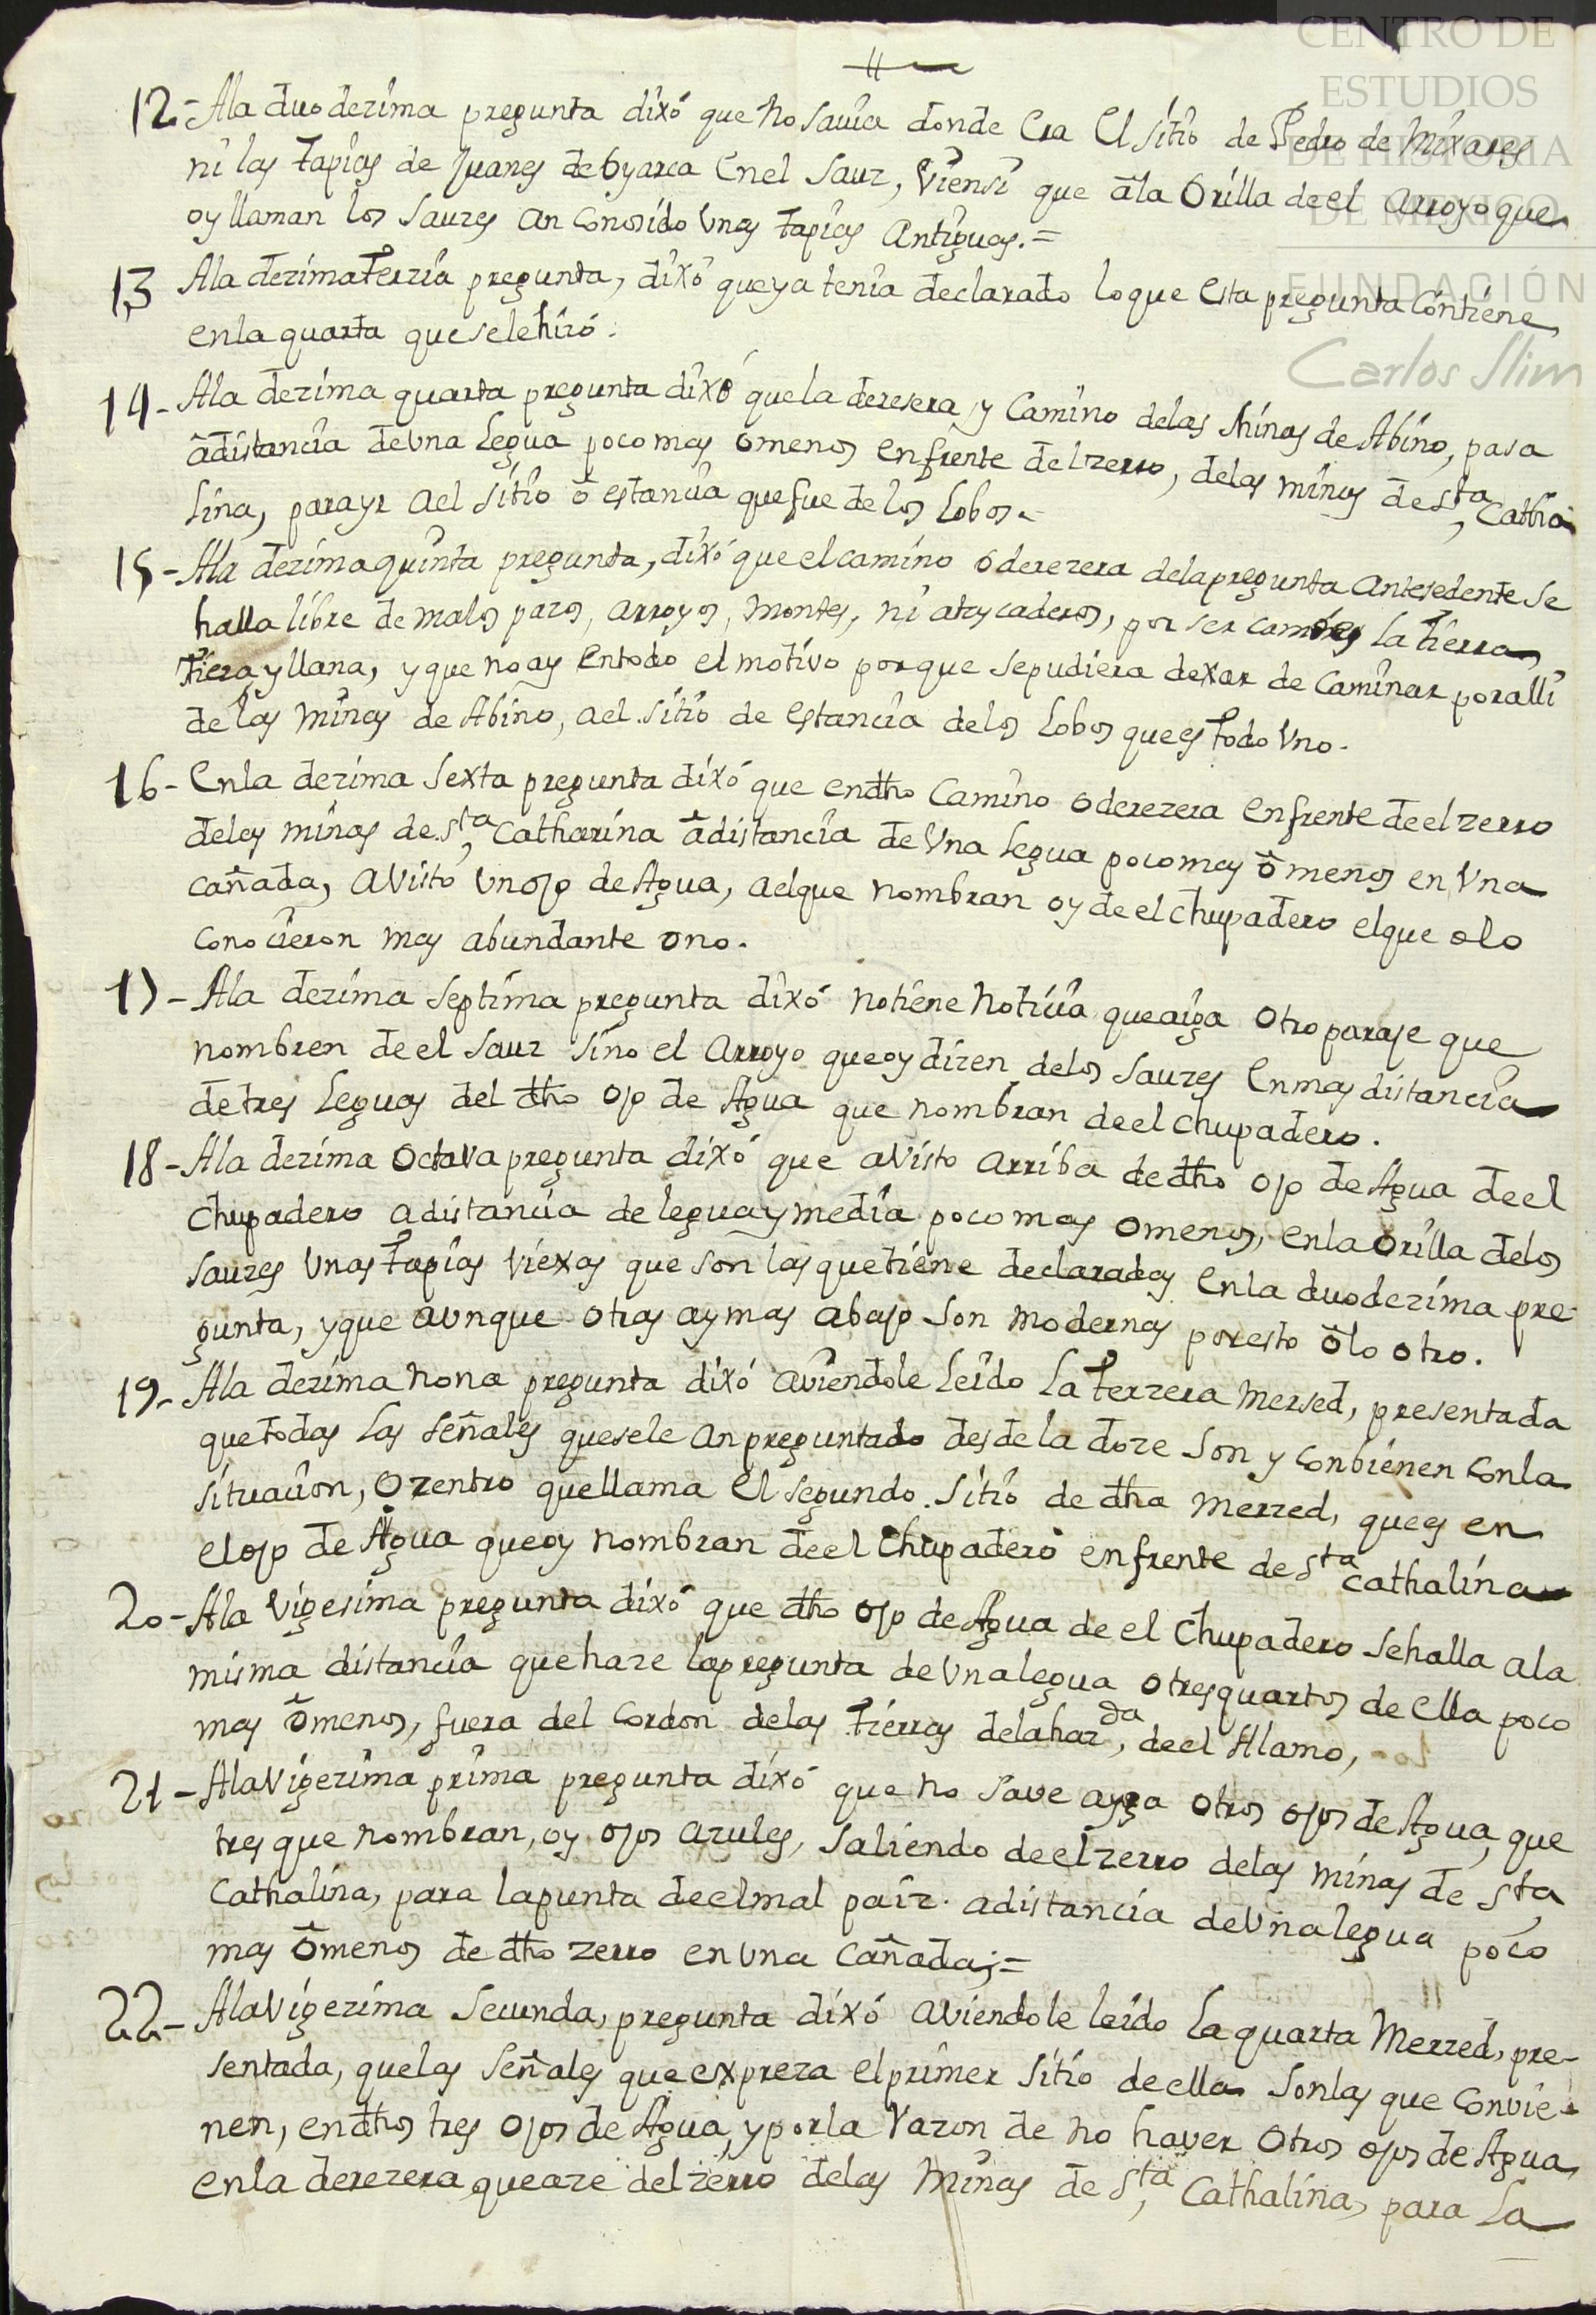 CENTRO DE
ESTUDIOS
DE HISTORIA
DE MEXICO
FUNDACIÓN
Carlos Slim
12.- Ala duo dezima pregunta dixó que no savia donde Era El sitio de Pedro de Mixares
ni las tapias de Juanes de Oyarca Enel Sauz, Viensi que āla Orilla de el arroyo que
oy llaman los Sauzes an Conosido Unas tapias Antiguas.=
13 Ala dezima terzia pregunta, dixó que ya tenia declarado lo que esta pregunta Contiene
en la quarta que se le hizó.
14- Ala dezima quarta pregunta dixó que la deresera, y Camino delas Minas de Abino, pasa
ādistancia de Una Legua poco mas ō menos en frente del zerro, delas minas de Sta, Catha
lina, para yr ael sitio ō estancia que fue de los Lobos.-
15- Ala dezima quinta pregunta, dixó que el camino o derezera dela pregunta Antesedente se
halla libre de malos pazos, arroyos, montes, ni atascaderos, por ser la tierra
tieza y llana, y que no ay En todo el motivo por que se pudiera dexar de Caminar por alli
de las minas de Abino, ael sitio de Estancia de los Lobos que es todo Uno.
16- En la dezima sexta pregunta dixó que en dho Camino o derezera en frente de el zerro
delas minas de Sta, Catharina ādistancia de Una legua poco mas ō menos en Una
cañada, a Visto Un ojo de Agua, ael que nombran oy de el chupadero el que olo
conocieron mas abundante ono.
17- Ala dezima septima pregunta dixó no tiene noticia que aiga Otro paraje que
nombren de el sauz sino el arroyo que oy dizen delos Sauzes En mas distancia
de tres Leguas del dho ojo de Agua que nombran de el chupadero.
18- Ala dezima Octava pregunta dixó que a Visto arriba de dho ojo de Agua de el
chupadero a distancia de legua y media poco mas omenos, en la Orilla delos
Sauzes Unas tapias viexas que son las que tiene declaradas En la duo dezima pre-
gunta, y que aunque otras ay mas abajo son modernas por esto ō lo otro.
19- Ala dezima nona pregunta dixó aviendole Leido La terzera Mersed, presentada
que todas Las señales que se le an preguntado desde la doze son y conbienen con la
situacion, O zentro que llama El segundo. Sitio de dha Merzed, que es en
el ojo de Agua que oy nombran de el Chupadero en frente de Sta cathalina
20- Ala Vigesima pregunta dixó que dho ojo de Agua de el Chupadero se halla ala
misma distancia que haze la pregunta de Una legua o tres quartos de ella poco
mas ō menos, fuera del Cordon delas tierras dela hazda, de el Alamo,
21- Ala Vigezima prima pregunta dixó que no save ayga Otros ojos de Agua, que
tres que nombran, oy ojos azules, saliendo de el zerro delas minas de Sta
Cathalina, para la punta de el mal paiz. a distancia de Una legua poco
mas ō menos de dho zerro en Una Cañada;=
22- Ala Vigezima Secunda, pregunta dixó aviendole leido La quarta Merzed, pre-
sentada, que las señales que expreza el primer sitio de ella son las que Convie-
nen, en dhos tres ojos de Agua, y por la razon de no haver Otros ojos de Agua,
en la derezera que aze del zerro delas Minas de Sta, Cathalina, para La